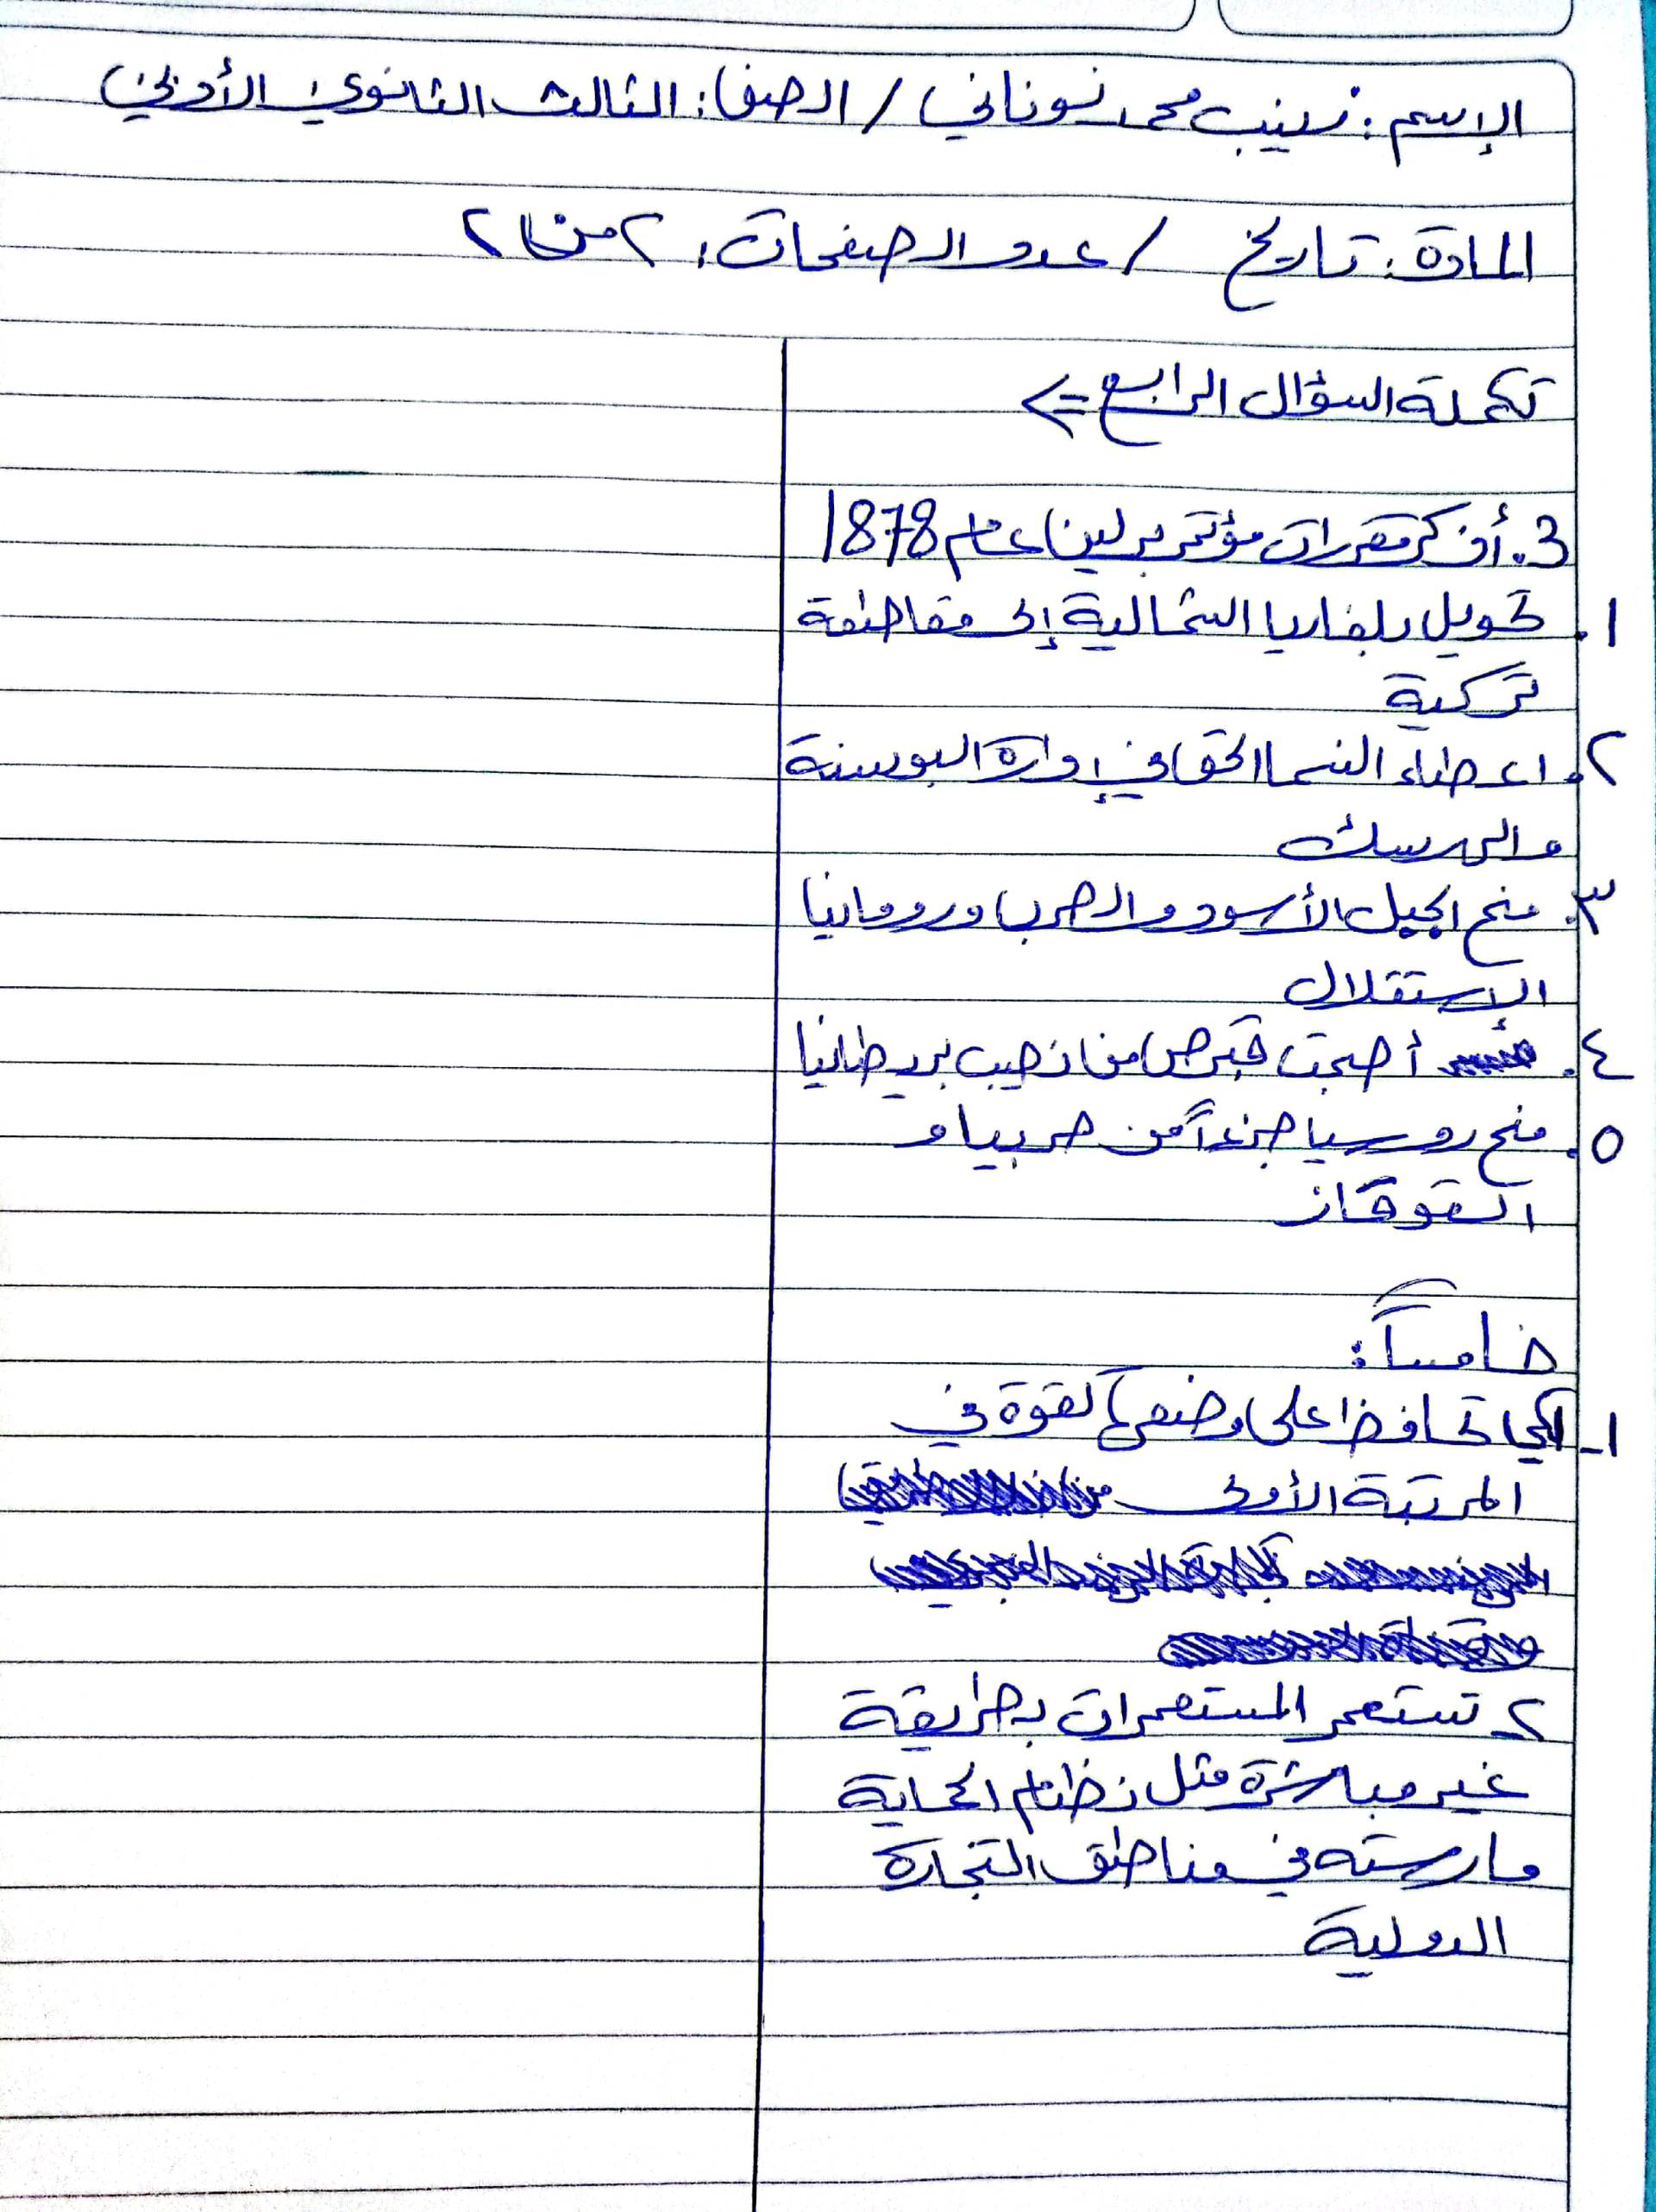 الإسم: زينب محمد نسوناني / الصف: الثالث الثانوي الأدبي
المادة: تاريخ / عدد الصفحات: ٢ من ٢
تكملة السؤال الرابع =>
3. أذكر مقررات مؤتمر برلين عام 1878
١. تحويل بلغاريا الشمالية إلى مقاطعة
تركية
٢. اعطاء النسما الحق في إدارة البوسنة
والهرسك
٣. منح الجبل الأسود والصرب ورومانيا
الإستقلال
٤. أصبحت قبرص من نصيب بريطانيا
٥. منح روسيا جزءاً من صربيا و
القوقاز
خامساً:
١- لكي تحافظ على وضعها كقوة في
المرتبة الأولى
٢- تستعمر المستعمرات بطريقة
غير مباشرة مثل نظام الحماية
مارسته في مناطق التجارة
الدولية